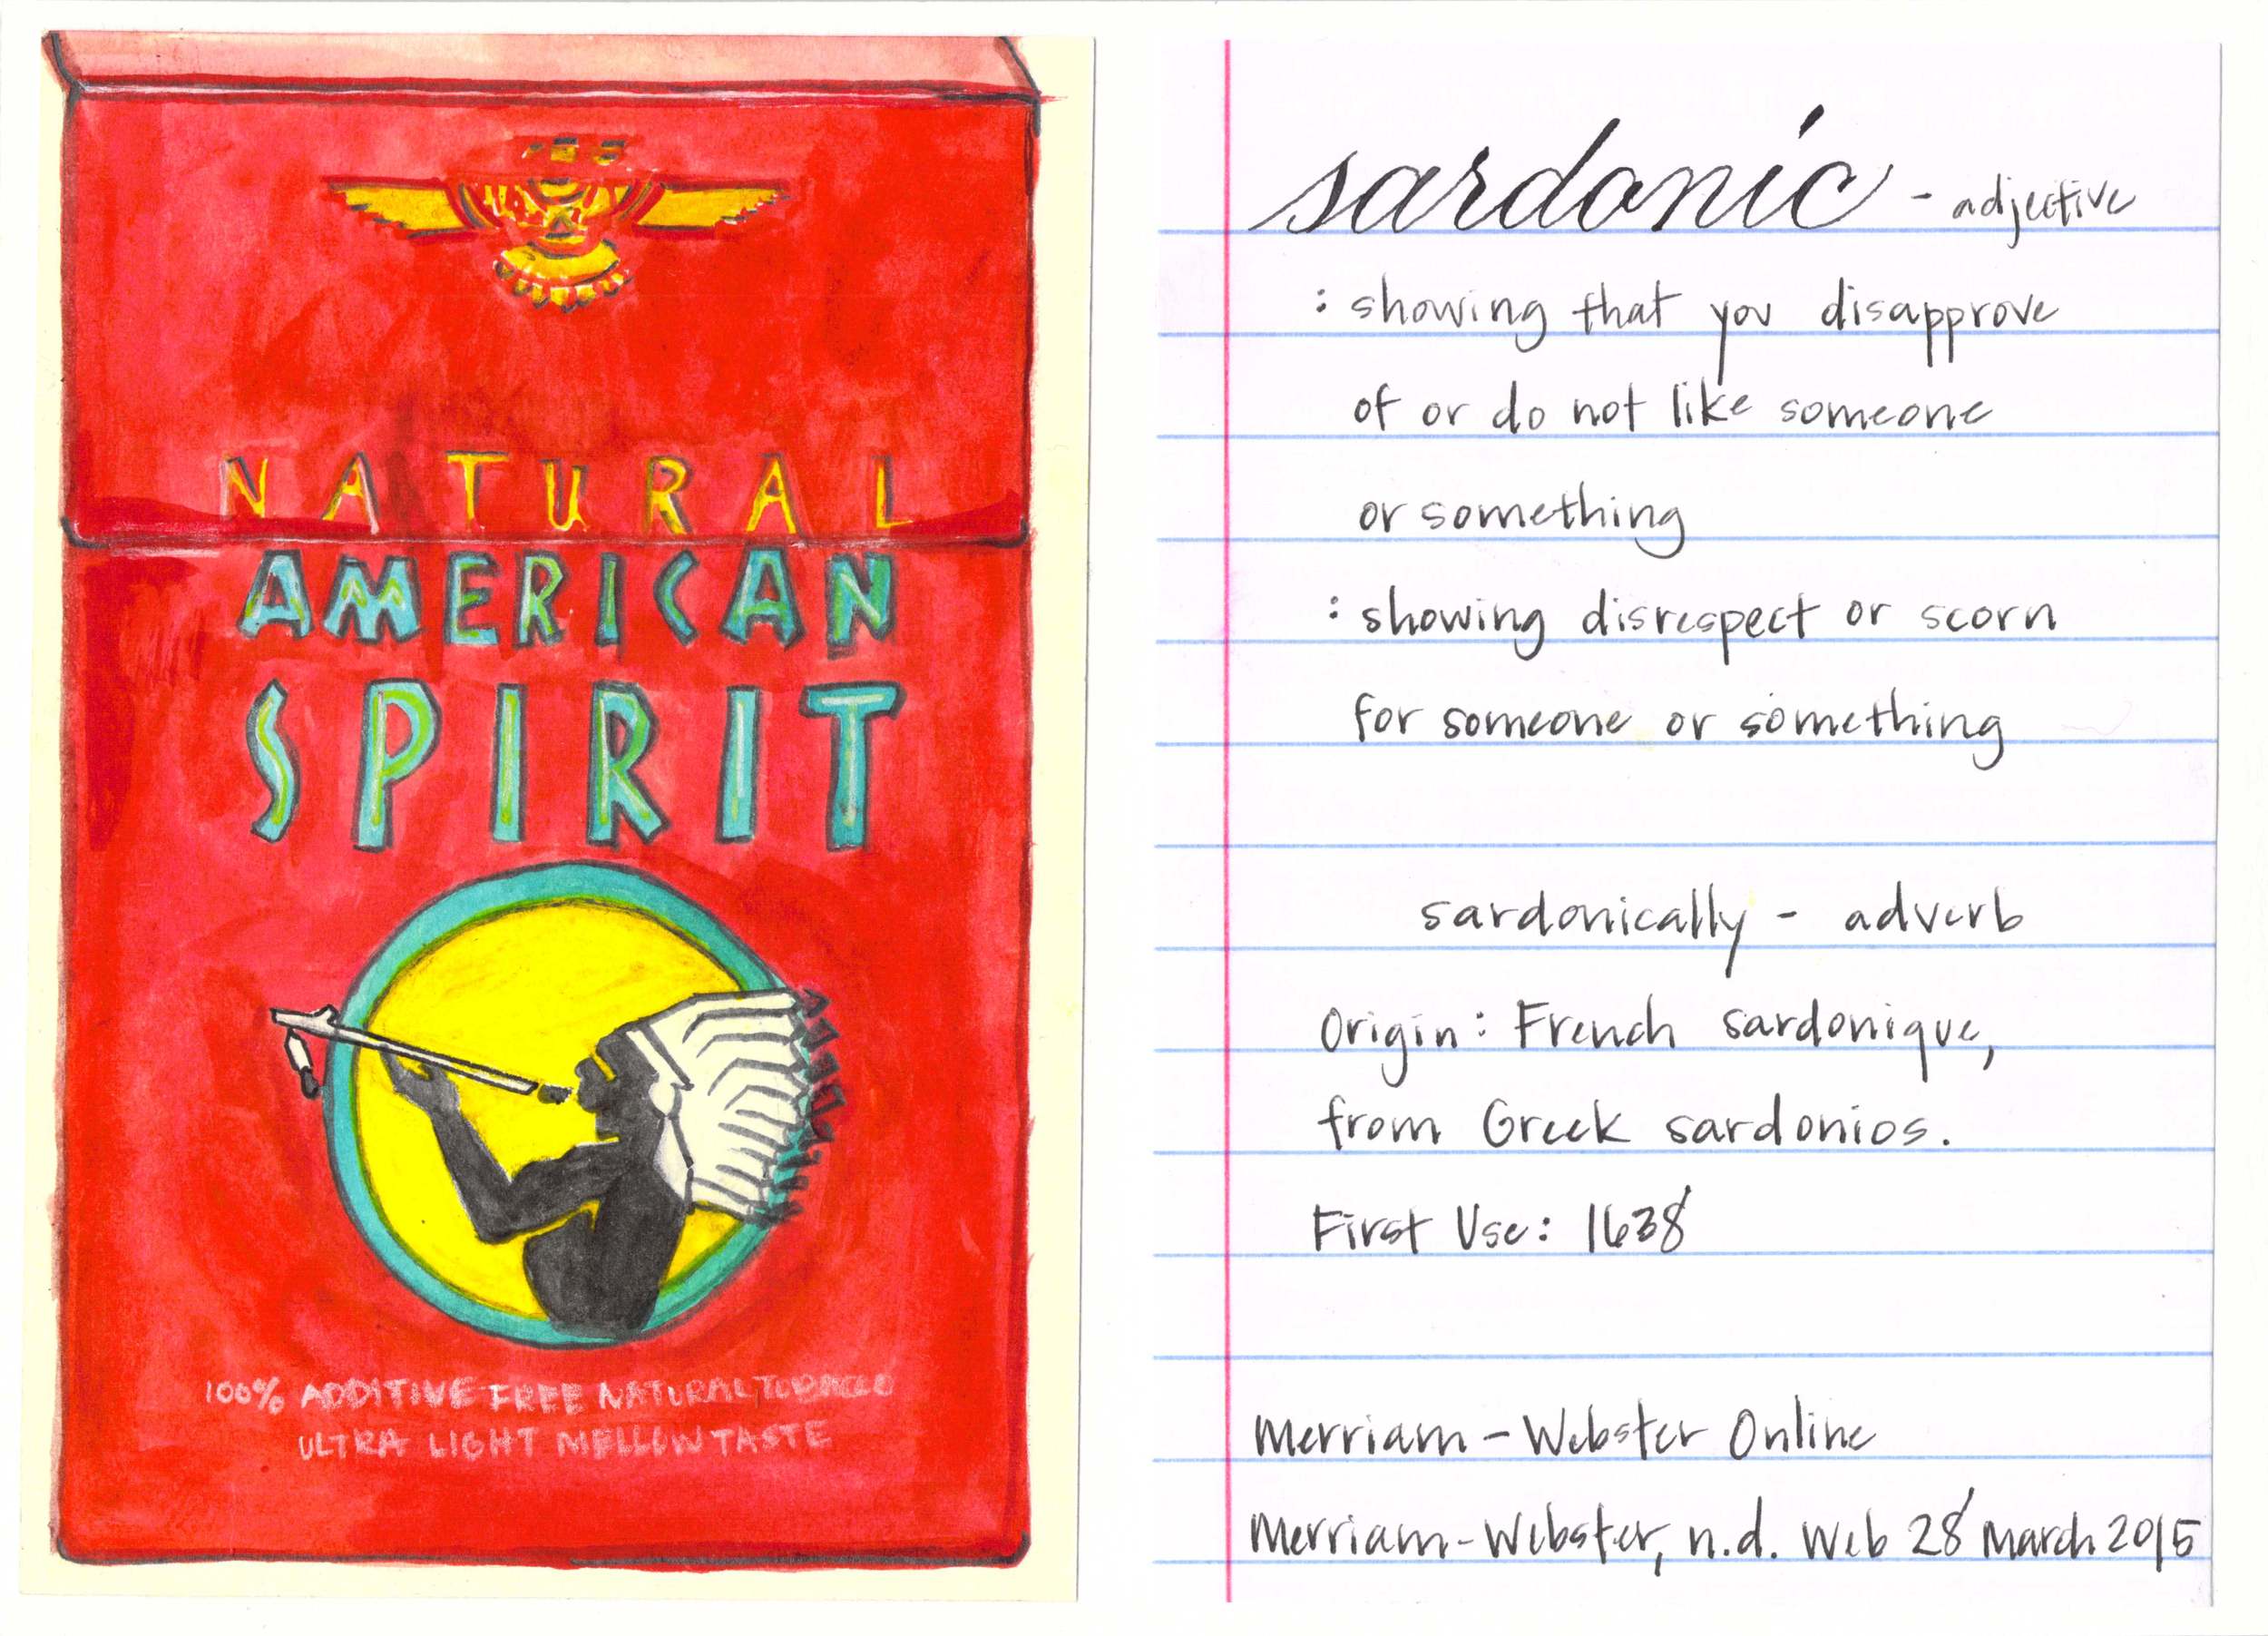 NATURAL
AMERICAN
SPIRIT
100% ADDITIVE FREE NATURAL TOBACCO
ULTRA LIGHT MELLOW TASTE
sardonic - adjective
: showing that you disapprove
of or do not like someone
or something
: showing disrespect or scorn
for someone or something
sardonically - adverb
Origin: French sardonique,
from Greek sardonios.
First Use: 1638
Merriam-Webster Online
Merriam-Webster, n.d. Web 28 March 2015